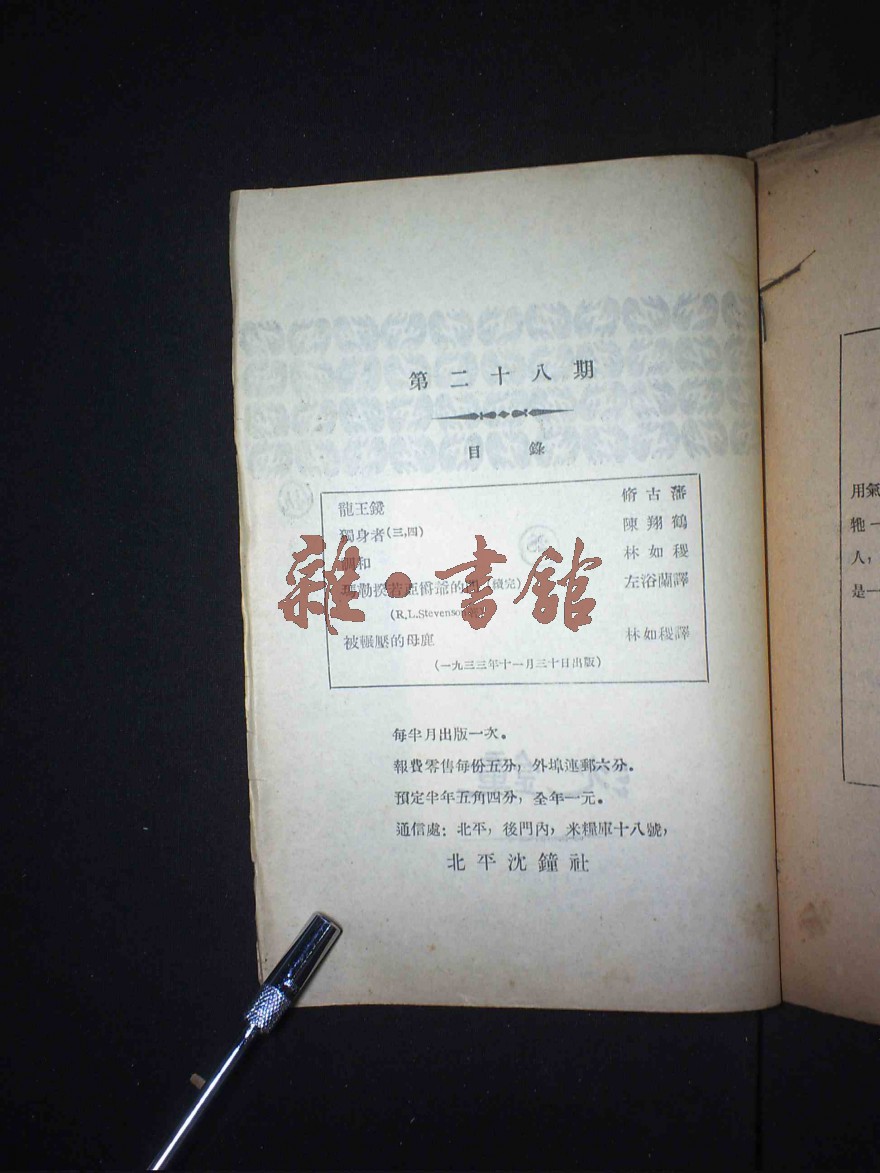 第二十八期
目錄
龍王鏡 脩古藩
獨身者(三,四) 陳翔鶴
調和 林如稷
若 爵爺的門(續完) 左浴蘭譯
(R.L.Stevenson
被輾壓的母鹿 林如稷譯
(一九三三年十一月三十日出版)
每半月出版一次。
報費零售每份五分,外埠連郵六分。
預定半年五角四分,全年一元。
通信處:北平,後門內,米糧庫十八號,
北平沈鐘社
雜·書館
用氣
牠一
人,
是一